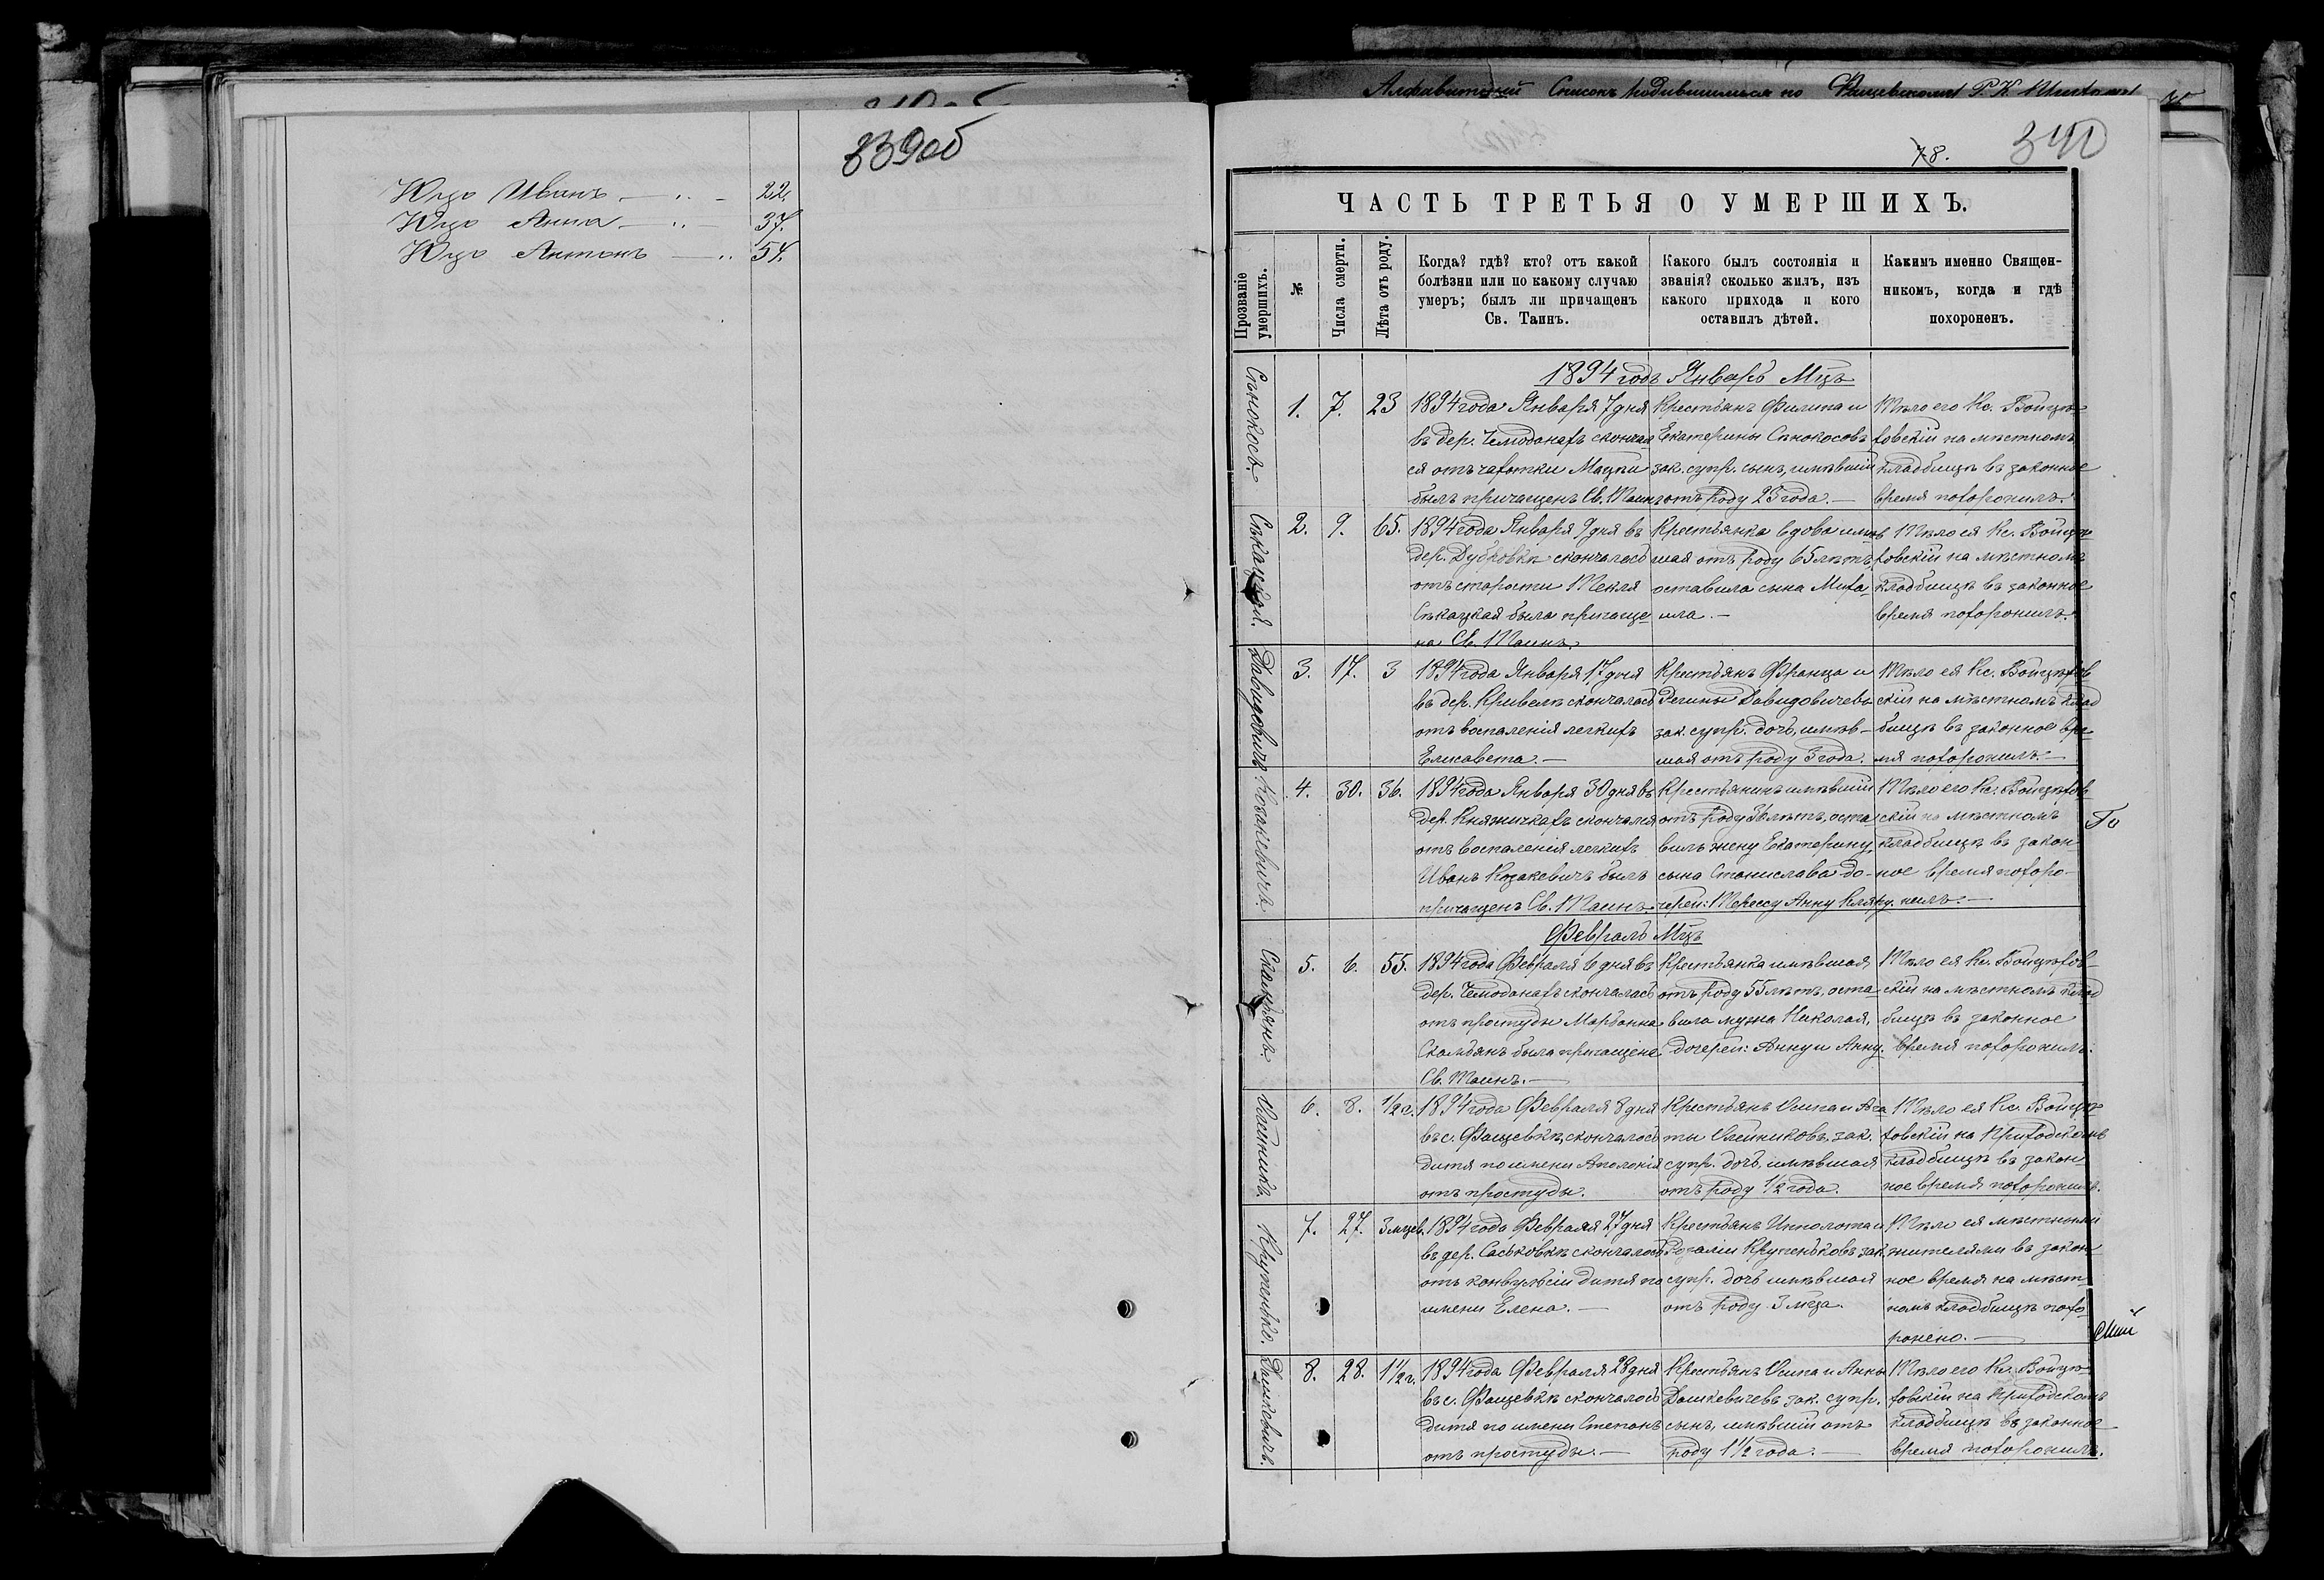 339об
Юцо Иванъ — ,, - 22.
Юцо Анна — ,, - 37.
Юцо Антонъ — ,, 54.
Алфавитный Списокъ родившимся по Фащевскому Р. К.
340
78.
ЧАСТЬ ТРЕТЬЯ О УМЕРШИХЪ.
Прозваніе умершихъ.
№
Числа смерти.
Лѣта отъ роду.
Когда? гдѣ? кто? отъ какой
болѣзни или по какому случаю
умеръ; былъ ли причащенъ
Св. Таинъ.
Какого былъ состоянія и
званія? сколько жилъ, изъ
какого прихода и кого
оставилъ дѣтей.
Какимъ именно Священ-
никомъ, когда и гдѣ
похороненъ.
1894 годъ Январь Мцъ
Сѣнокосъ.
1. 7. 23
1894 года Января 7 дня
въ дер. Чемоданахъ скончал
ся отъ чахотки Мацки
былъ причащенъ Св. Таинъ
Крестьянъ Филипа и
Екатерины Сѣнокосовъ
зак. супр. сынъ, имѣвшій
отъ роду 23 года. —
Тѣло его Кс. Войцѣ-
ховскій на мѣстномъ
кладбищѣ въ законное
время похоронилъ.
Сѣкацкая.
2. 9. 65.
1894 года Января 9 дня въ
дер. Дубровкѣ скончалась
отъ старости Текля
Сѣкацкая была причаще
на Св. Таинъ.
Крестьянка вдова имѣв
шая отъ роду 65 лѣтъ,
оставила сына Миха
ила. —
Тѣло ея Кс. Войцѣ
ховскій на мѣстномъ
кладбищѣ въ законное
время похоронилъ.
Давидовичъ
3. 17. 3
1894 года Января 17 дня
въ дер. Кривелѣ скончалась
отъ воспаленія легкихъ
Елисавета. —
Крестьянъ Франца и
Регины Давидовичевъ
зак. супр. дочь, имѣв-
шая отъ роду 3 года.
Тѣло ея Кс. Войцѣхов
скій на мѣстномъ клад
бищѣ въ законное вре
мя похоронилъ. —
Козакевичъ.
4. 30. 36.
1894 года Января 30 дня въ
дер. Княжичкахъ скончался
отъ воспаленія легкихъ
Иванъ Козакевичъ былъ
причащенъ Св. Таинъ.
Крестьянинъ имѣвшій
отъ роду 36 лѣтъ, оста
вилъ жену Екатерину,
сына Станислава до-
черей: Терессу Анну
Тѣло его Кс. Войцѣхов
скій на мѣстномъ
кладбищѣ въ закон
ное время похоро-
нилъ. —
Февраль Мцъ
Скамьянъ.
5. 6. 55.
1894 года Февраля 6 дня въ
дер. Чемоданахъ скончалась
отъ простуды Марьянна
Скамьянъ была причащена
Св. Таинъ. —
Крестьянка имѣвшая
отъ роду 55 лѣтъ, оста
вила мужа Николая,
дочерей: Анну и Анну.
Тѣло ея Кс. Войцѣхов-
скій на мѣстномъ клад
бищѣ въ законное
время похоронилъ.
6. 8. 1/2 г.
1894 года Февраля 8 дня
въ с. Фащевкѣ скончалось
дитя по имени Аполонія
отъ простуды.
Крестьянъ Осипа и Ага
ты Олейниковъ зак.
супр. дочь, имѣвшая
отъ роду 1/2 года.
Тѣло ея Кс. Войцѣ
ховскій на Приходскомъ
кладбищѣ въ закон
ное время похоронилъ.
Крупенько.
7. 27. 3 мцев.
1894 года Февраля 27 дня
въ дер. Саськовкѣ скончалось
отъ конвульсіи дитя по
имени Елена. —
Крестьянъ Ипполита и
Розаліи Крупеньковъ зак.
супр. дочь имѣвшая
отъ роду 3 мца.
Тѣло ея мѣстными
жителями въ закон
ное время на мѣст
номъ кладбищѣ похо
ронено. —
Дашкевичъ.
8. 28. 1 1/2 г.
1894 года Февраля 28 дня
въ с. Фащевкѣ скончалось
дитя по имени Степанъ
отъ простуды. —
Крестьянъ Осипа и Анны
Дашкевичевъ зак. супр.
сынъ, имѣвшій отъ
роду 1 1/2 года. —
Тѣло его Кс. Войцѣ-
ховскій на Приходскомъ
кладбищѣ въ законное
время похоронилъ.